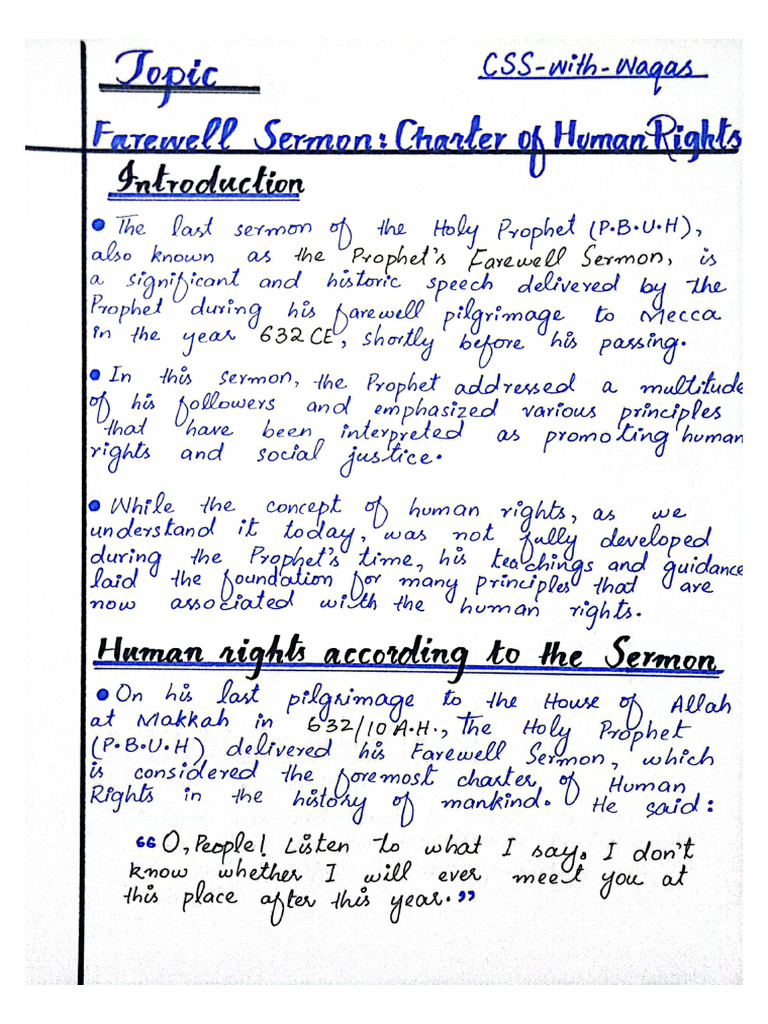 Topic
CSS-with-Waqas
Farewell Sermon: Charter of Human Rights
Introduction
• The last sermon of the Holy Prophet (P.B.U.H),
also known as the Prophet's Farewell Sermon, is
a significant and historic speech delivered by the
Prophet during his farewell pilgrimage to Mecca
in the year 632 CE, shortly before his passing.
• In this sermon, the Prophet addressed a multitude
of his followers and emphasized various principles
that have been interpreted as promoting human
rights and social justice.
• While the concept of human rights, as we
understand it today, was not fully developed
during the Prophet's time, his teachings and guidance
laid the foundation for many principles that are
now associated with the human rights.
Human rights according to the Sermon
• On his last pilgrimage to the House of Allah
at Makkah in 632/10 A.H., The Holy Prophet
(P.B.U.H) delivered his Farewell Sermon, which
is considered the foremost charter of Human
Rights in the history of mankind. He said:
“O, People! Listen to what I say. I don't
know whether I will ever meet you at
this place after this year.”